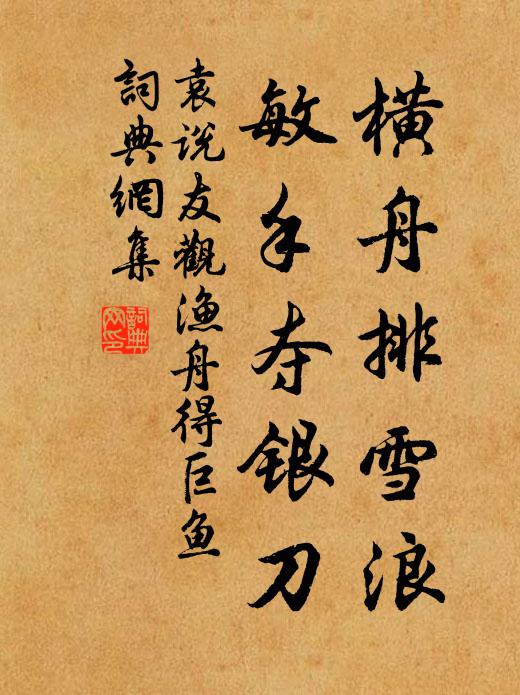 橫舟排雪浪
敏手夺銀刀
袁说友觀渔舟得巨鱼
詞典網集
詞典
网印